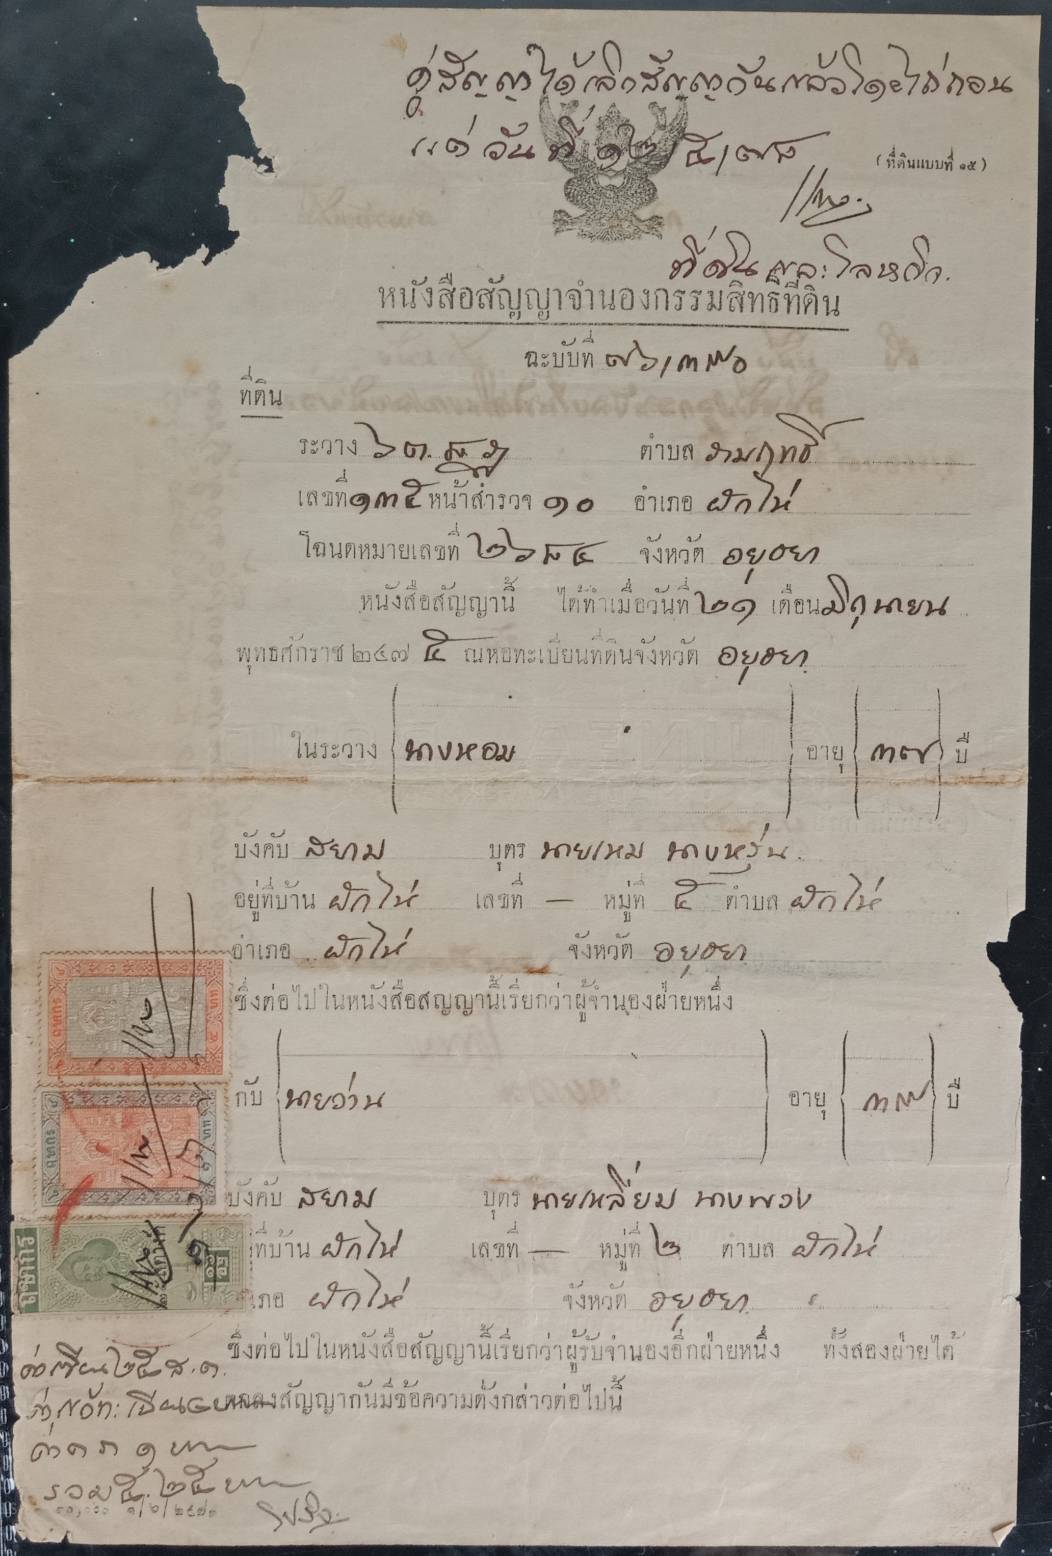 คู่สัญญาได้เลิกสัญญากันแล้วโดยไถ่ถอน
แต่วันที่ ๑๒/๕/๗๘
(ที่ดินแบบที่ ๑๕)
ที่ดินและโลหกิจ.
หนังสือสัญญาจำนองกรรมสิทธิ์ที่ดิน
ฉะบับที่ ๗๖/๓๙๐
ที่ดิน
ระวาง ๖ ต. ตำบล นามฤทธิ์
เลขที่ ๑๓๕ หน้าสำรวจ ๑๐ อำเภอ ผักไห่
โฉนดหมายเลขที่ ๒๖๘๔ จังหวัด อยุธยา
หนังสือสัญญานี้ ได้ทำเมื่อวันที่ ๒๑ เดือน มิถุนายน
พุทธศักราช ๒๔๗๕ ณหอทะเบียนที่ดินจังหวัด อยุธยา
ในระวาง นางหอม อายุ ๓๗ ปี
บังคับ สยาม บุตร นายเหม นางหรุ่น
อยู่ที่บ้าน ผักไห่ เลขที่ — หมู่ที่ ๕ ตำบล ผักไห่
อำเภอ ผักไห่ จังหวัด อยุธยา
ซึ่งต่อไปในหนังสือสัญญานี้เรียกว่าผู้จำนองฝ่ายหนึ่ง
กับ นายว่าน อายุ ๓๙ ปี
บังคับ สยาม บุตร นายเหลี่ยม นางพวง
ที่บ้าน ผักไห่ เลขที่ — หมู่ที่ ๒ ตำบล ผักไห่
อำเภอ ผักไห่ จังหวัด อยุธยา
ซึ่งต่อไปในหนังสือสัญญานี้เรียกว่าผู้รับจำนองอีกฝ่ายหนึ่ง ทั้งสองฝ่ายได้
ตกลงสัญญากันมีข้อความดังกล่าวต่อไปนี้
อากร
อากร
อากร
ค่าเขียน ๒๕ ส.ต.
ค่าตรา ๑ บาท
รวม ๕.๒๕ บาท